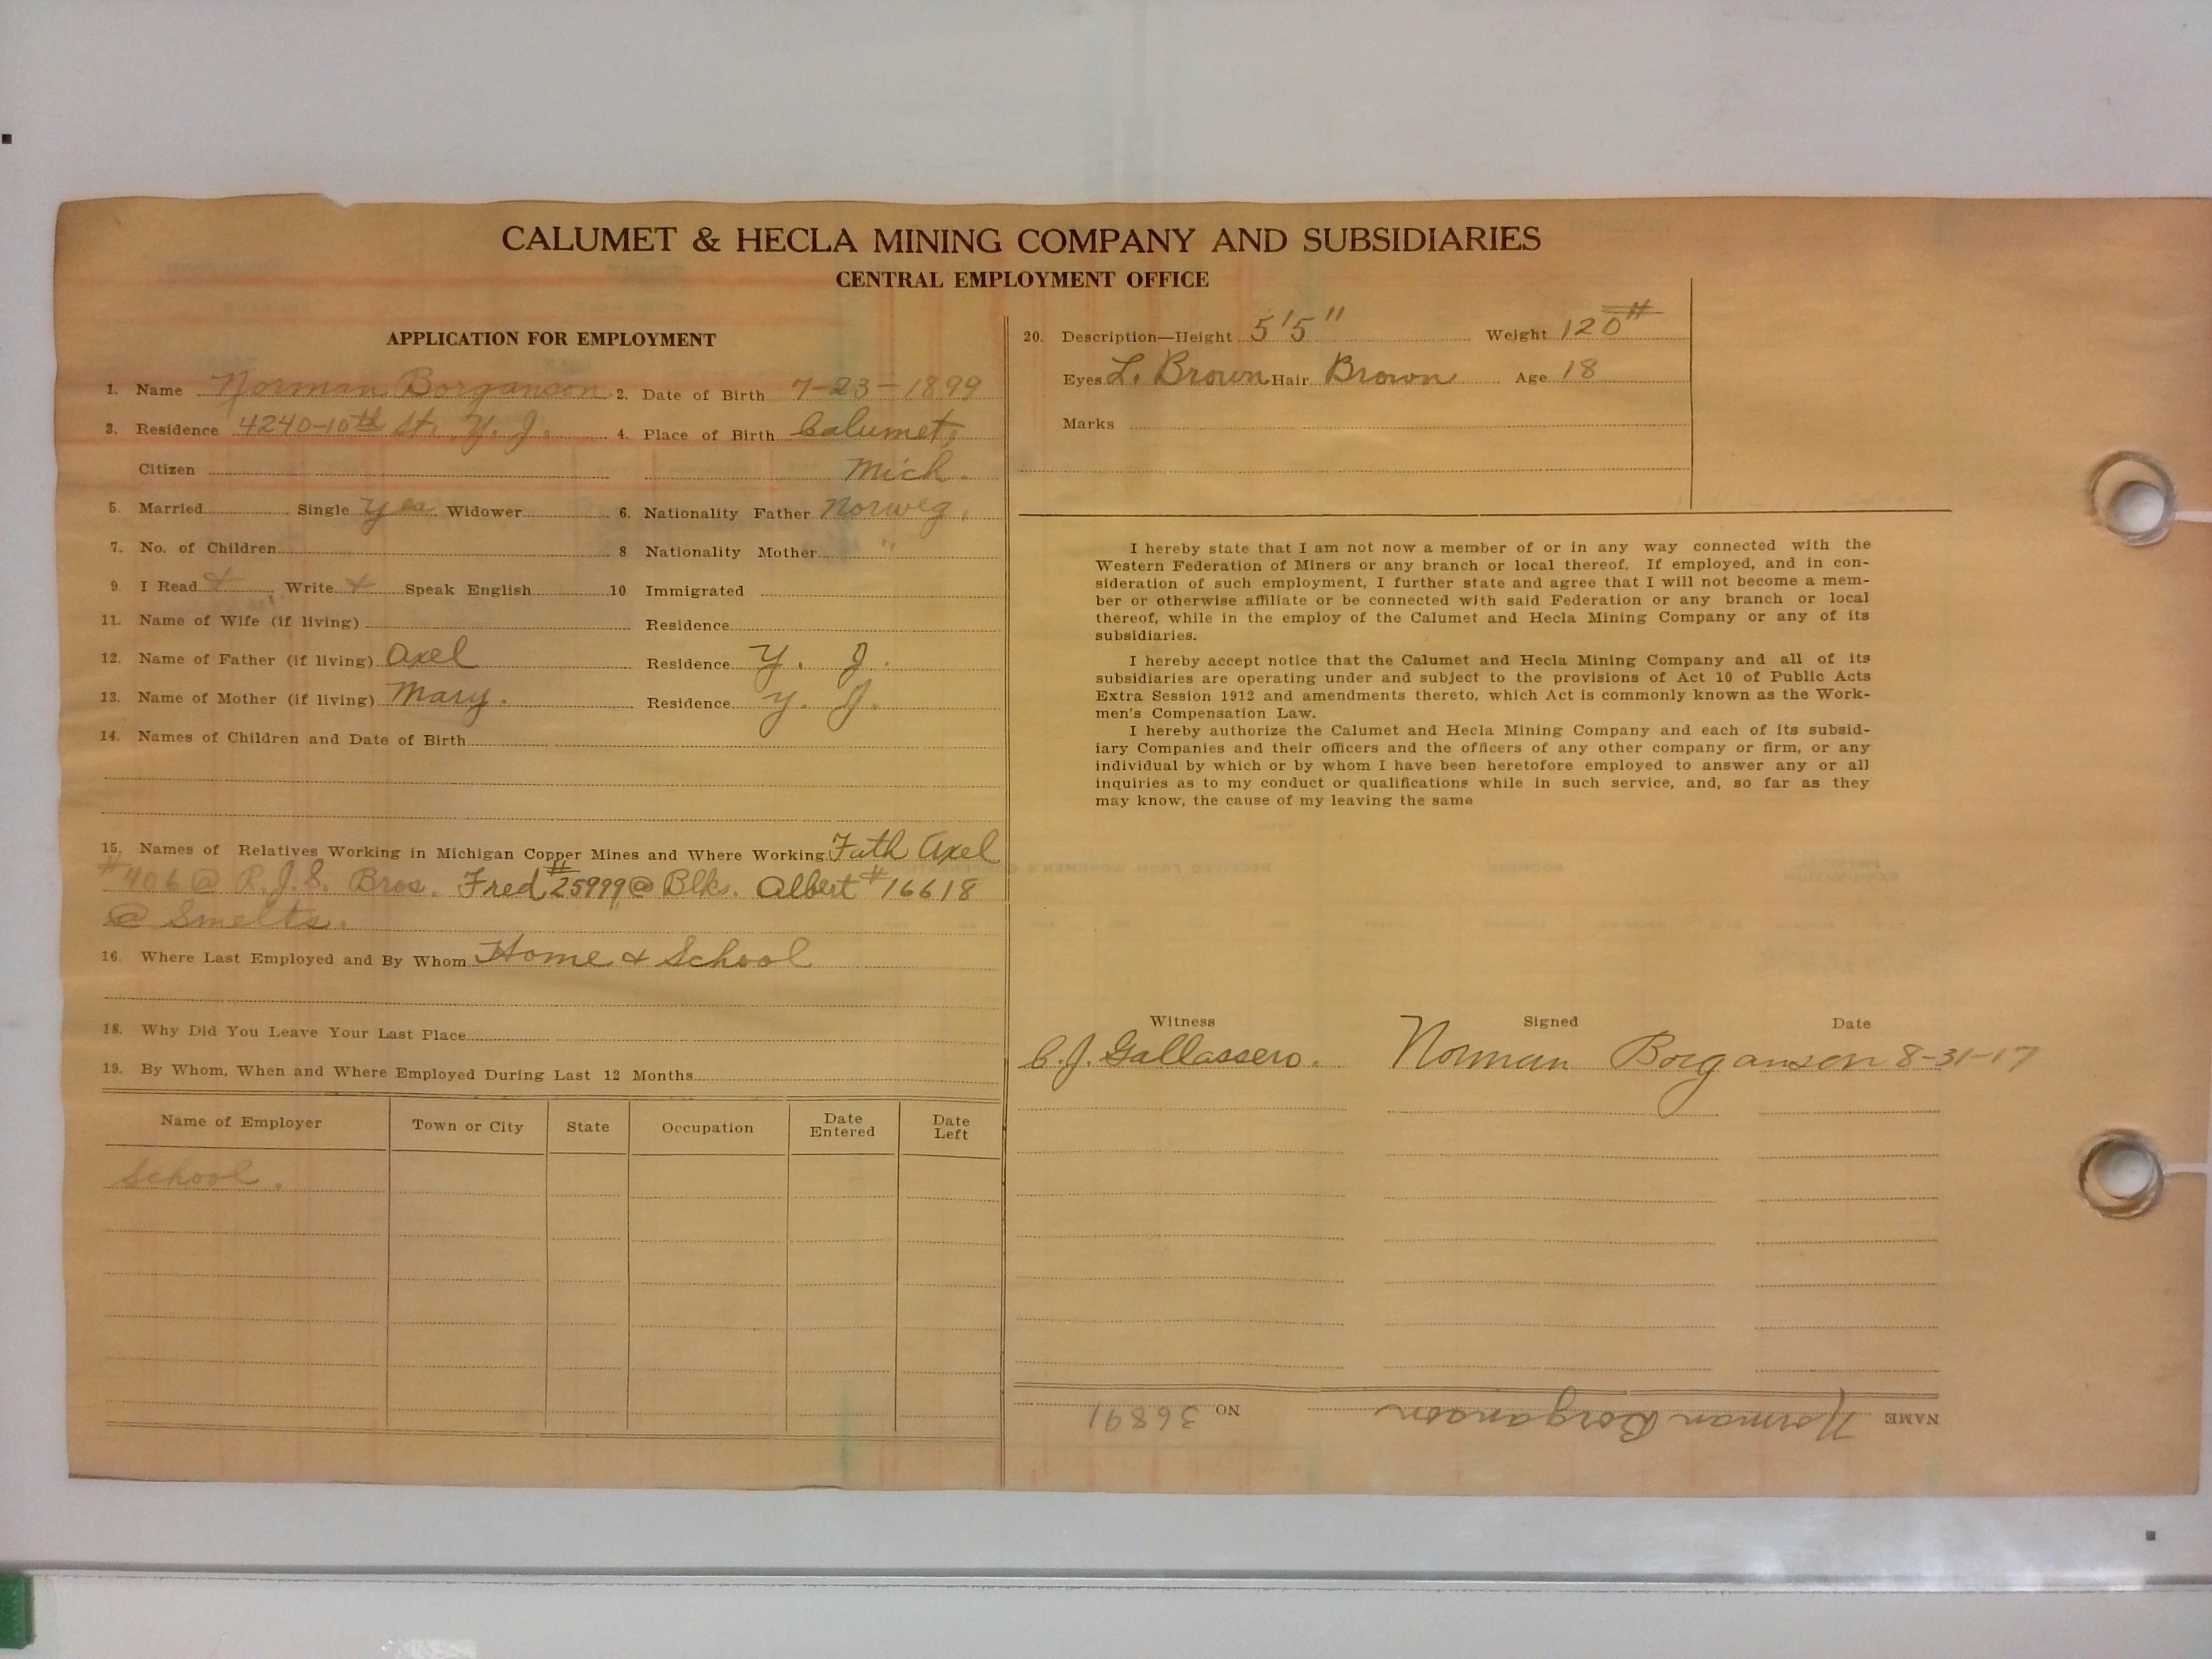 CALUMET & HECLA MINING COMPANY AND SUBSIDIARIES
CENTRAL EMPLOYMENT OFFICE
APPLICATION FOR EMPLOYMENT
1. Name Norman Borganson 2. Date of Birth 7-23-1899
3. Residence 4240-10th St. Y. J. 4. Place of Birth Calumet,
Citizen Mich.
5. Married Single yes Widower 6. Nationality Father Norweg.
7. No. of Children 8 Nationality Mother "
9 I Read + Write + Speak English 10 Immigrated
11. Name of Wife (if living) Residence
12. Name of Father (if living) Axel Residence Y. J.
13. Name of Mother (if living) Mary. Residence Y. J.
14. Names of Children and Date of Birth
15. Names of Relatives Working in Michigan Copper Mines and Where Working Fath Axel
#406 @ R.J.S. Bros. Fred #25999 @ Blks. Albert #16618
@ Smelts.
16. Where Last Employed and By Whom Home & School
18. Why Did You Leave Your Last Place
19. By Whom, When and Where Employed During Last 12 Months
Name of Employer Town or City State Occupation Date Entered Date Left
School.
20. Description—Height 5'5" Weight 120#
Eyes L. Brown Hair Brown Age 18
Marks
I hereby state that I am not now a member of or in any way connected with the
Western Federation of Miners or any branch or local thereof. If employed, and in con-
sideration of such employment, I further state and agree that I will not become a mem-
ber or otherwise affiliate or be connected with said Federation or any branch or local
thereof, while in the employ of the Calumet and Hecla Mining Company or any of its
subsidiaries.
I hereby accept notice that the Calumet and Hecla Mining Company and all of its
subsidiaries are operating under and subject to the provisions of Act 10 of Public Acts
Extra Session 1912 and amendments thereto, which Act is commonly known as the Work-
men's Compensation Law.
I hereby authorize the Calumet and Hecla Mining Company and each of its subsid-
iary Companies and their officers and the officers of any other company or firm, or any
individual by which or by whom I have been heretofore employed to answer any or all
inquiries as to my conduct or qualifications while in such service, and, so far as they
may know, the cause of my leaving the same
Witness Signed Date
C. J. Gallassero. Norman Borganson 8-31-17
NAME Norman Borganson NO 36891